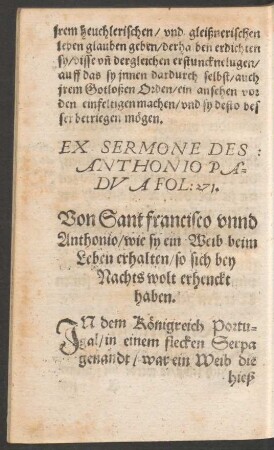 jrem heuchlerischen/ vnd gleißnerischen
leben glauben geben/derha ben erdichten
sy/disse vñ dergleichen erstuncknelugen/
auff das sy jnnen dardurch selbst/auch
jrem Gotloßen Orden/ein ansehen vor
den einfeltigen machen/vnd sy desto bes
ser betriegen mögen.
EX SERMONE DES :
ANTHONIO PA-
DVA FOL: 271.
Von Sant francisco vnnd
Anthonio/wie sy ein Weib beim
Leben erhalten/so sich bey
Nachts wolt erhenckt
haben.
IN dem Königreich Portu-
gal/in einem flecken Serpa
genandt/ war ein Weib die
hieß